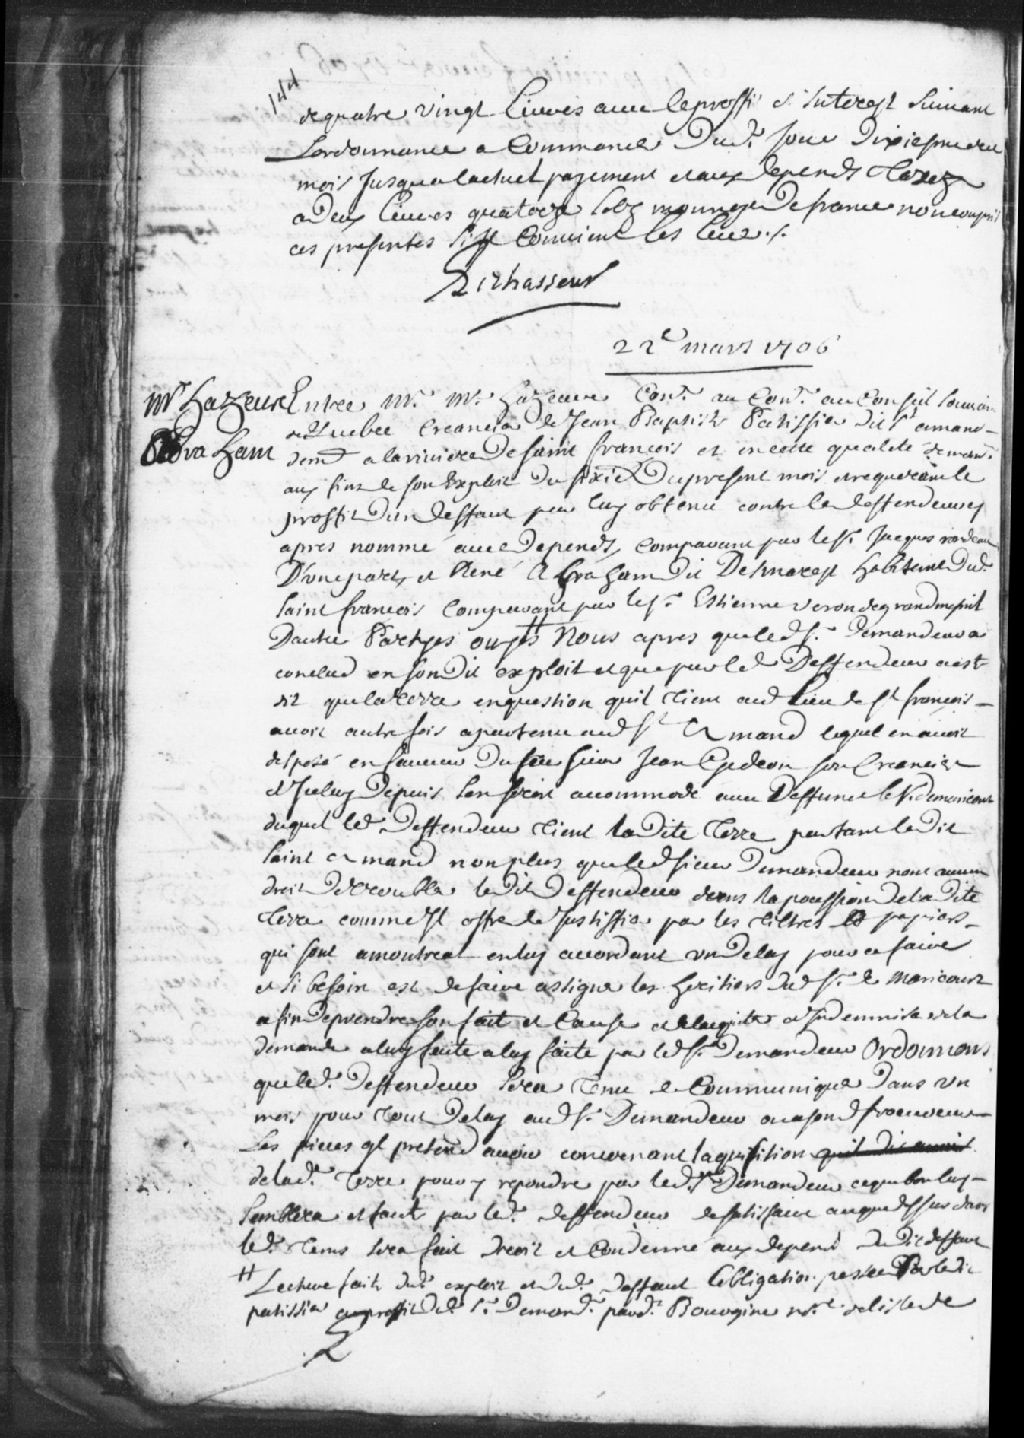 144
de quatre vingt livres avec le proffit et Interest Suivant
Lordonnance a Commancer Dud. Jour Dixiesme du
mois Jusqua lactuel payement et aux depends Taxez
a Deux livres quatorze solz monnoye De france non compris
ces presentes Sil Convient les lever ./.
22e mars 1706
Mr Hazzeur
Abraham
Entre Mr. Mr. Hazeure Conr. au Conseil Souverain
de Quebec Creancier de Jean Baptiste Patissier dit St amand
demt a la riviere De saint francois et en cette qualité demandr
aux fins de son Exploit Du sixie Du present mois et requerant le
proffit Dun deffaut par luy obtenu contre le deffendeur cy
apres nommé avec Depends, comparant par le Sr. Jacques
D'une part, et René Abraham Dit Desmarest habitant Dud.
Saint francois Comparant par le Sr. Estienne Veron de grandmesnil
Dautre Partyes ouyes # Nous apres que led Sr. Demandeur a
conclud en son Dit exploit et que par led Deffendeur a est
dit que la terre en question quil tient aud lieu de St francois
avoit autrefois apartenu aud St Amand lequel en avoit
disposé en faveur Du feu sieur Jean Gedeon son Creancier
et Iceluy Depuis sen seroit accommodé avec Deffunt le Sr de maricour
duquel led Deffendeur tient la Dite Terre partant le dit
Saint Amand non plus que led sieur Demandeur nont aucun
droit De troubler le dit Deffendeur dans la possession de la Dite
Terre comme Il offre de Justiffier par les Tiltres et papiers
qui sont a montreal en luy accordant un delay pour ce faire
et si besoin est de faire assigner les heritiers dud Sr. de Maricourt
afin de prendre son fait et Cause et lacquiter et Indemniser de la
demande a luy faite a luy faite par led Sr. demandeur Ordonnons
que led. Deffendeur sera Tenu de Communiquer Dans un
mois pour tout Delay aud Sr. Demandeur ou a son procureur
Les pieces ql pretend avoir concernant laquisition quil dit avoir
de lad. Terre pour y repondre par led. Sr Demandeur ce que bon luy
semblera et faute par led. deffendeur de satisfaire au que dessus dans
led. Tems sera fait droit et Condemné aux depens du dit deffaut
# Lecture faite dud. exploit et dud. deffaut Lobligation passée Par le dit
patissier au proffit dud Sr. Demandr. pard. Bourgine nore de lisle de